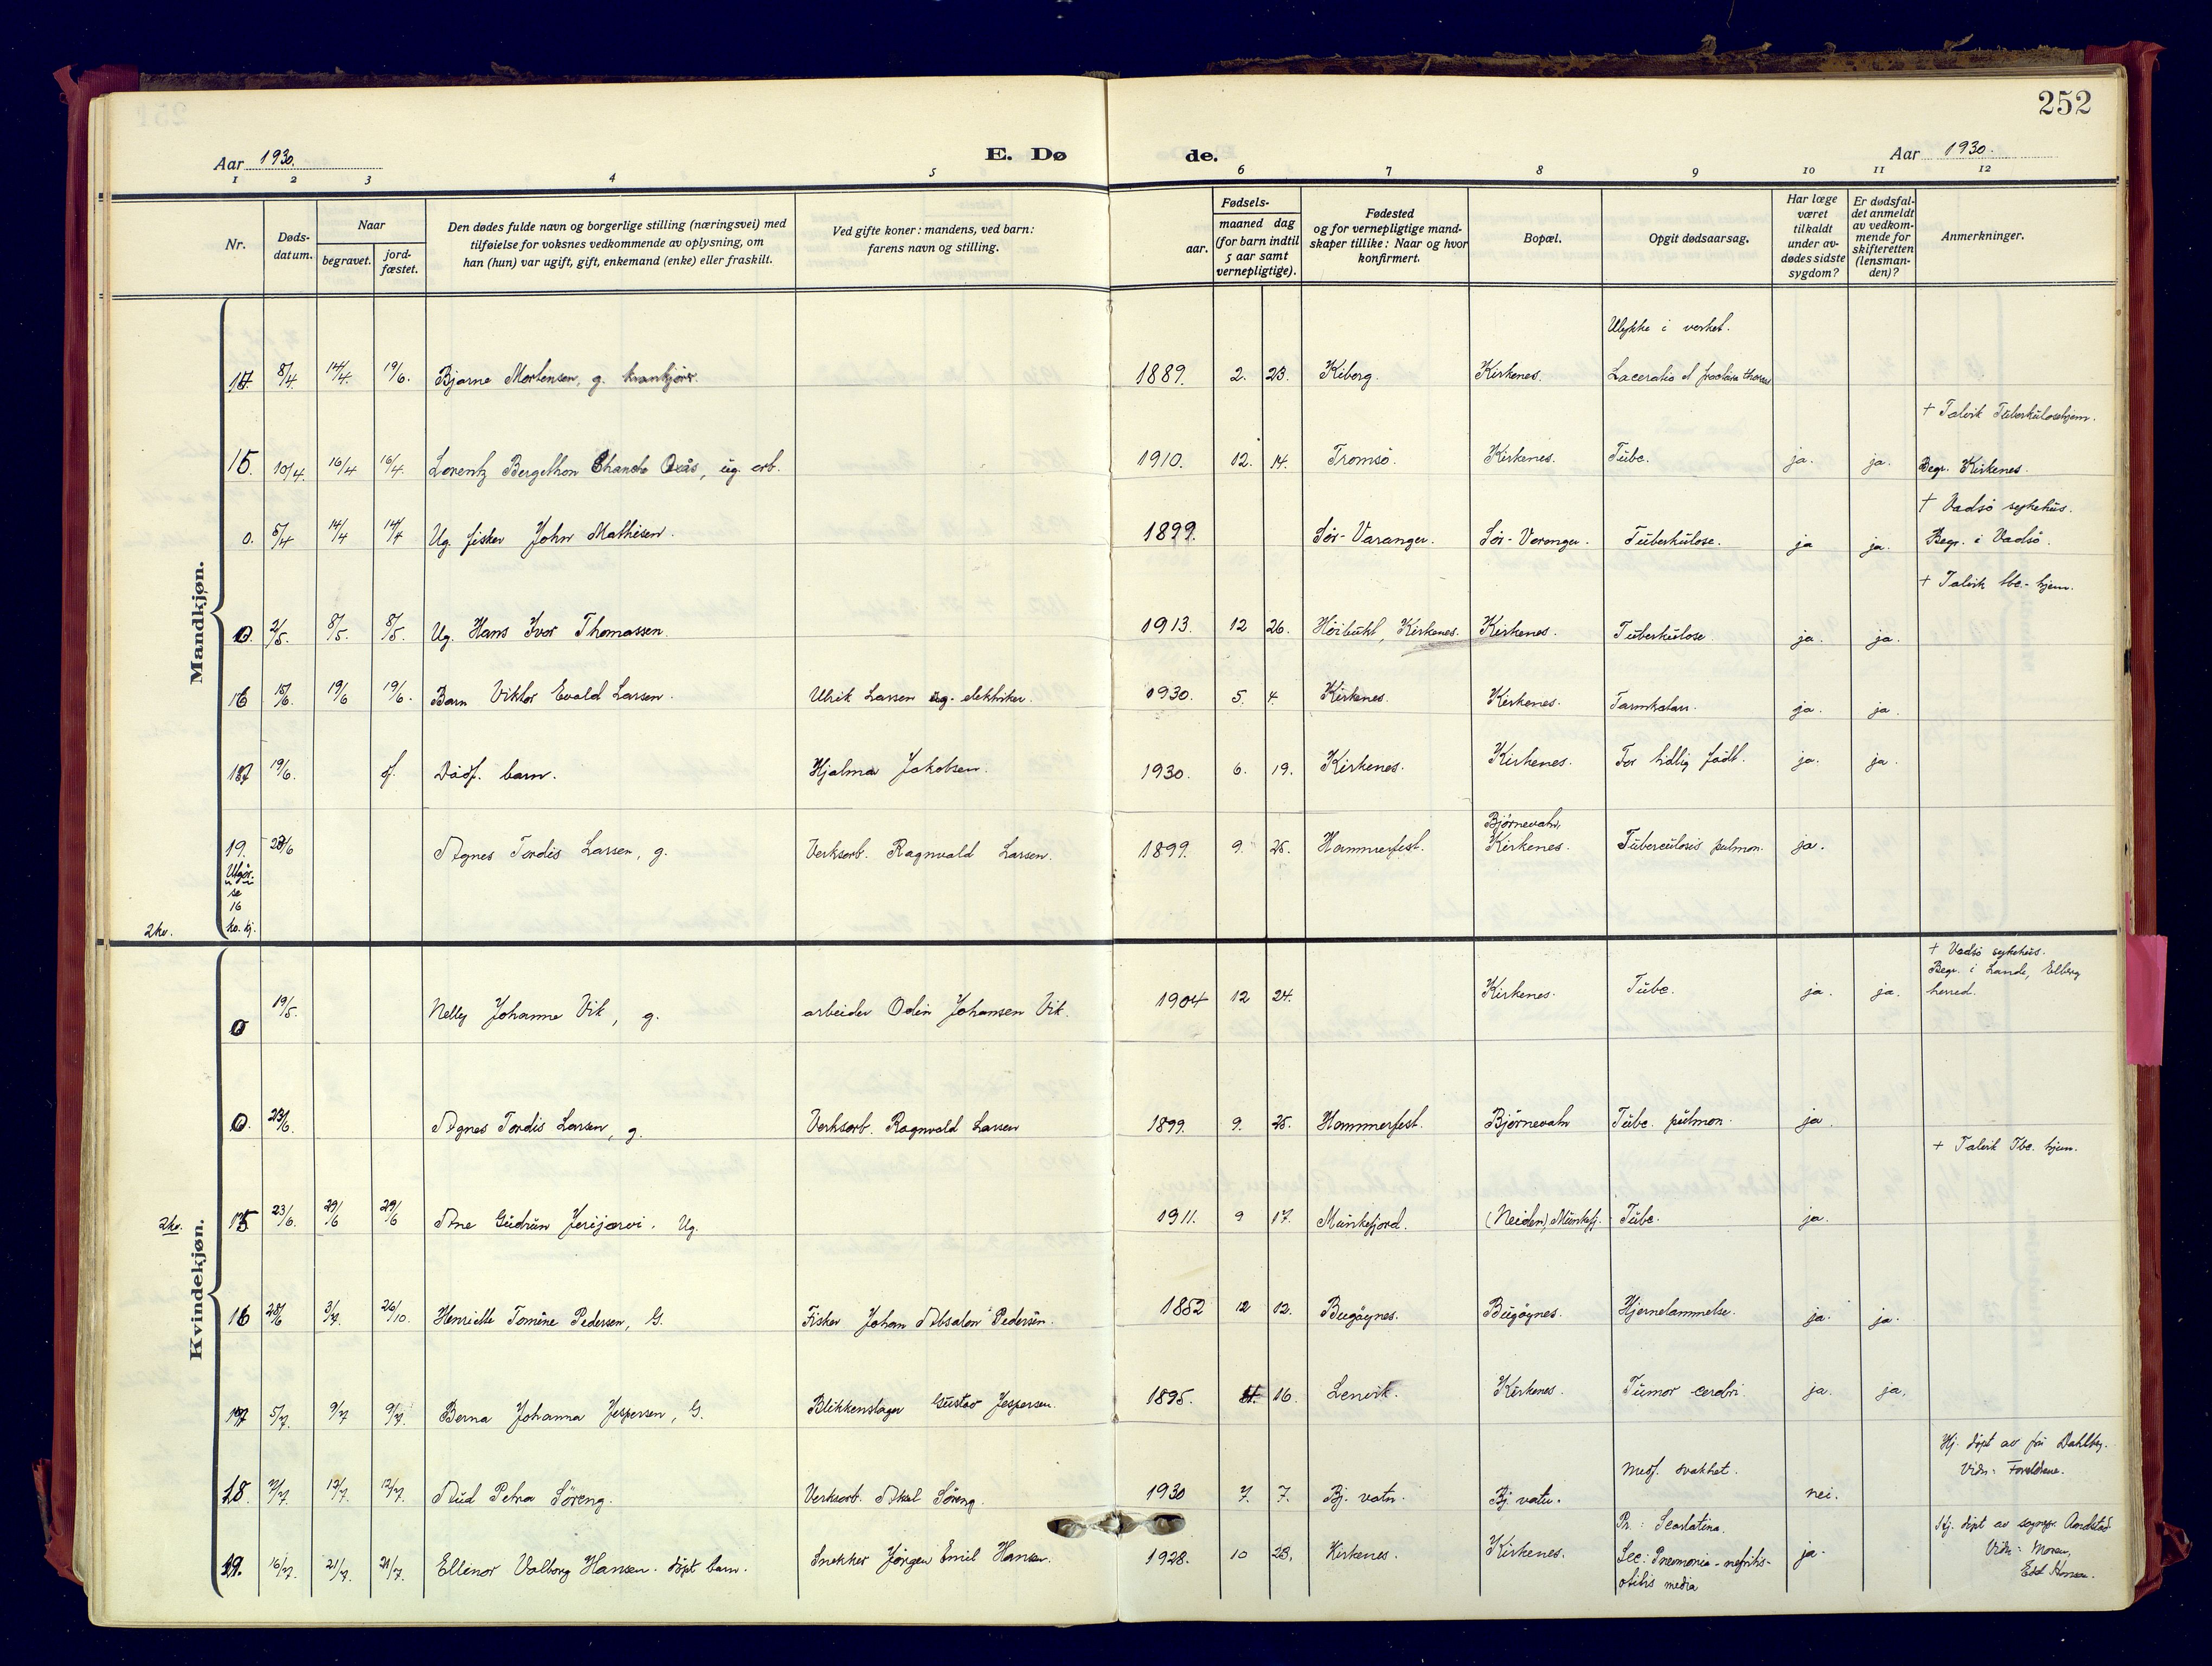 252
Aar 1930.
E. Dø
de.
Aar 1930.
1 2 3 4 5 6 7 8 9 10 11 12
Nr.
Døds-
datum.
Naar
begravet.
jord-
fæstet.
Den dødes fulde navn og borgerlige stilling (næringsvei) med
tilføielse for voksnes vedkommende av oplysning, om
han (hun) var ugift, gift, enkemand (enke) eller fraskilt.
Ved gifte koner: mandens, ved barn:
farens navn og stilling.
Fødsels-
aar.
maaned dag
(for barn indtil
5 aar samt
vernepligtige).
Fødested
og for vernepligtige mand-
skaper tillike: Naar og hvor
konfirmert.
Bopæl.
Opgit dødsaarsag.
Har læge
været
tilkaldt
under av-
dødes sidste
sygdom?
Er dødsfal-
det anmeldt
av vedkom-
mende for
skifteretten
(lensman-
den)?
Anmerkninger.
Mandkjøn.
Ulykke i verket.
8/4 14/4. 19/6. Bjarne Mortensen, g. krankjører. 1889. 2. 23. Kiberg. Kirkenes. Laceratio et fractura thorax
+ Talvik Tuberkulosehjem.
15. 10/4. 16/4 16/4. Lorentz Bergethon Oxås, ug. arb. 1910. 12. 14. Tromsö. Kirkenes. Tubc. ja. ja. Begr. Kirkenes.
+ Vadsö sykehus.
0. 5/4 14/4 14/4 Ug. fisker John Mathisen. 1899. Sör-Varanger. Sör-Varanger. Tuberkulose. ja ja. Begr. i Vadsö.
+ Talvik tbc-hjem.
0. 2/5. 8/5. 8/5. Ug. Hans Ivar Thomassen. 1913. 12 26. Höibukt, Kirkenes. Kirkenes. Tuberkulose. ja. ja.
16 15/6. 19/6 19/6. Barn Viktor Evald Larsen. Ulrik Larsen ug. elektriker. 1930. 5. 4. Kirkenes. Kirkenes. Tarmkatarr. ja. ja.
17 19/6. df. Dödf. barn. Hjalmar Jakobsen. 1930. 6. 19. Kirkenes. Kirkenes. For tidlig födt. ja. ja.
Bjørnevatn,
19. 23/6 Agnes Tordis Larsen, g. Verksarb. Ragnvald Larsen. 1899. 9. 25. Hammerfest. Kirkenes. Tuberculosis pulmon. ja.
Utgår.
se
16
kv. kj.
2kv.
Kvindekjøn.
+ Vadsö sykehus.
Begr. i Lande, Elberg
0 19/5. Nelly Johanne Vik, g. arbeider Odin Johansen Vik. 1904 12 24. Kirkenes. Tubc. ja. ja. herred.
0. 23/6. Agnes Tordis Larsen, g. Verksarb. Ragnvald Larsen 1899. 9. 25. Hammerfest. Björnevatn Tubc. pulmon. ja.
+ Talvik Tbc. hjem.
2kv.
15 23/6. 29/6 29/6 Ane Gudrun Jerijærvi. Ug. 1911. 9 17. Munkefjord. (Neiden), Munkefj. Tubc. ja.
16 28/6 3/7. 26/10. Henriette Tomine Pedersen, G. Fisker Johan Absalon Pedersen. 1852 12 12. Bugöynes. Bugöynes. Hjernelammelse. ja. ja.
17 5/7. 9/7 9/7. Berna Johanna Jespersen, G. Blikkenslager Gustav Jespersen. 1895. 16. Lenvik. Kirkenes. Tumor cerebri. ja. ja.
Hj. döpt av fru Dahlberg.
Medf. svakhet. Vidn: Foreldrene.
18. 7/7. 12/7. 12/7. Aud Petra Söreng. Verksarb. Aksel Söreng. 1930 7. 7. Bj. vatn. Bj. vatn. nei.
Pr.: Scarlatina. Hj. döpt av sognepr. Aandstad
19. 16/7. 21/7. 21/7. Ellinor Valborg Hansen. döpt barn. Snekker Jörgen Emil Hansen. 1928. 10 23. Kirkenes. Kirkenes. Sec: Pnemonia-nefritis- ja. Vidn: Moren,
otitis media Edd Hansen.